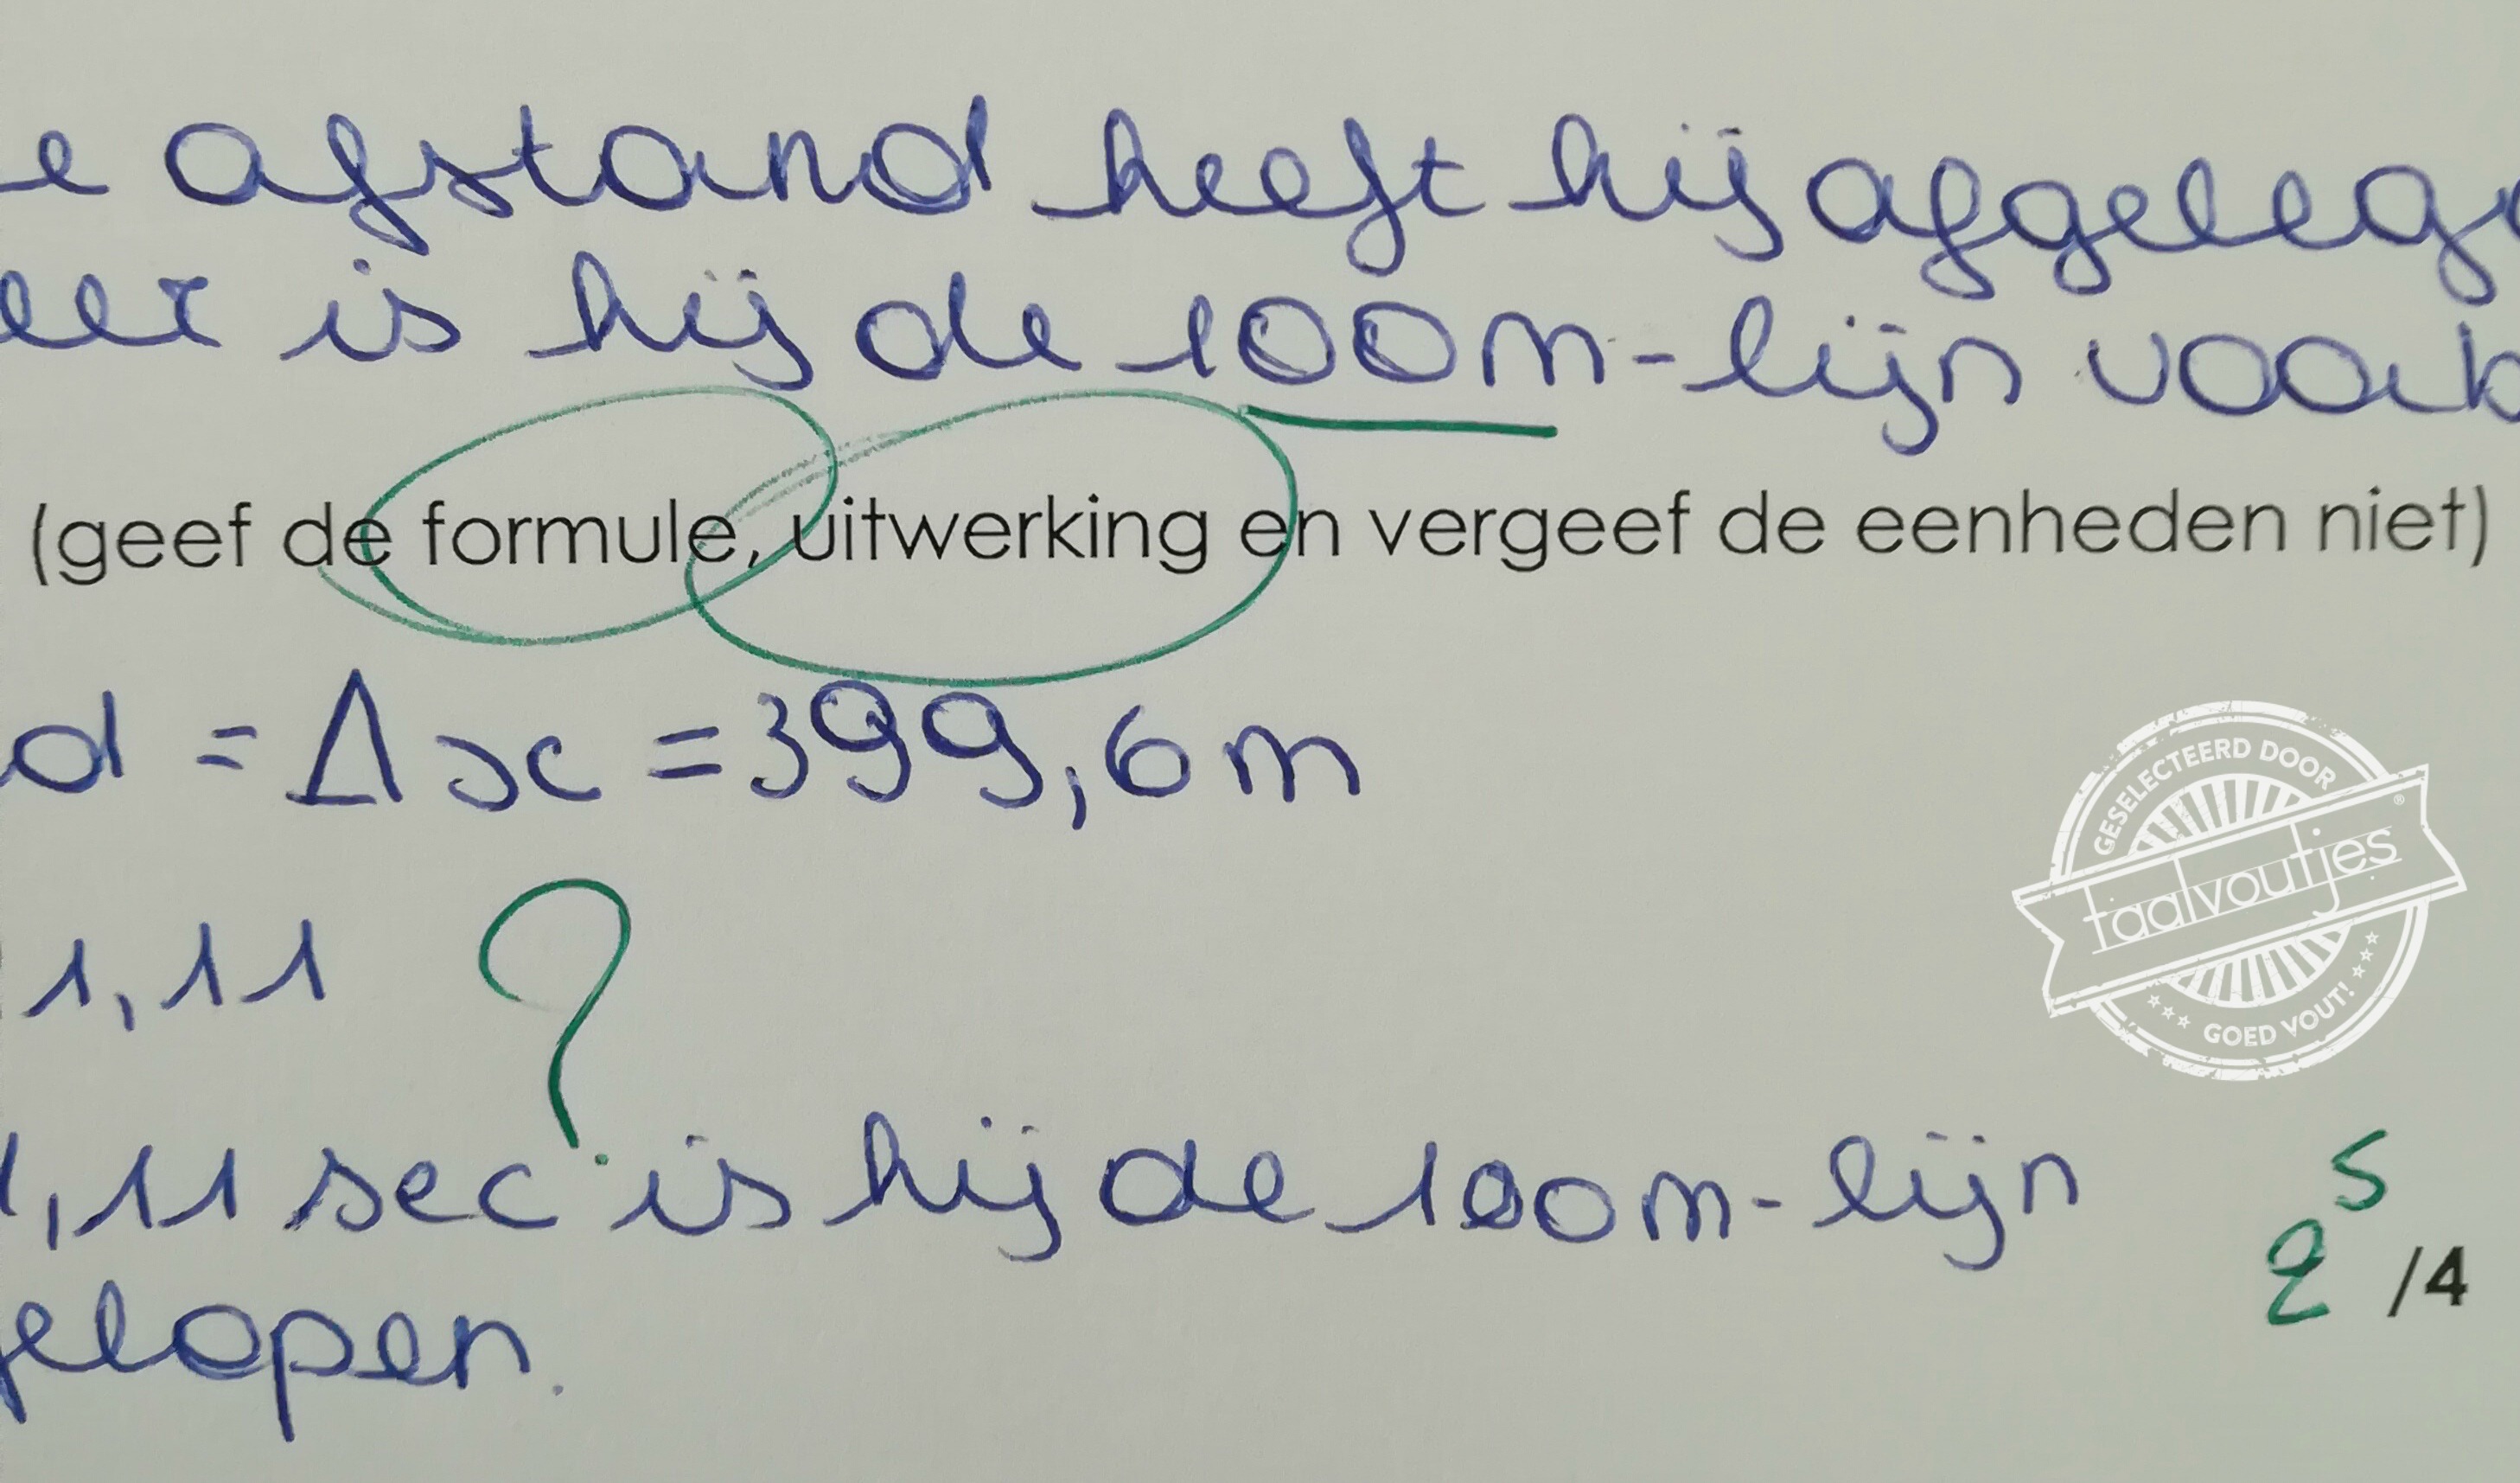 e afstand heeft hij afgeleg
eer is hij de 100m-lijn voorb
(geef de formule, uitwerking en vergeef de eenheden niet)
d = Δx = 399,6 m
1,11 ?
1,11 sec is hij de 100m-lijn
gelopen.
2 5 /4
GESELECTEERD DOOR
taalvoutjes ®
GOED VOUT!